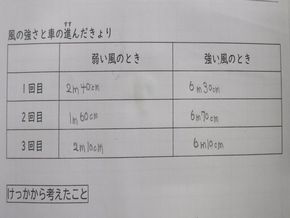 風の強さと車の進んだきょり
すす
弱い風のとき 強い風のとき
1回目 2m40cm 6m30cm
2回目 1m60cm 6m70cm
3回目 2m10cm 6m10cm
けっかから考えたこと